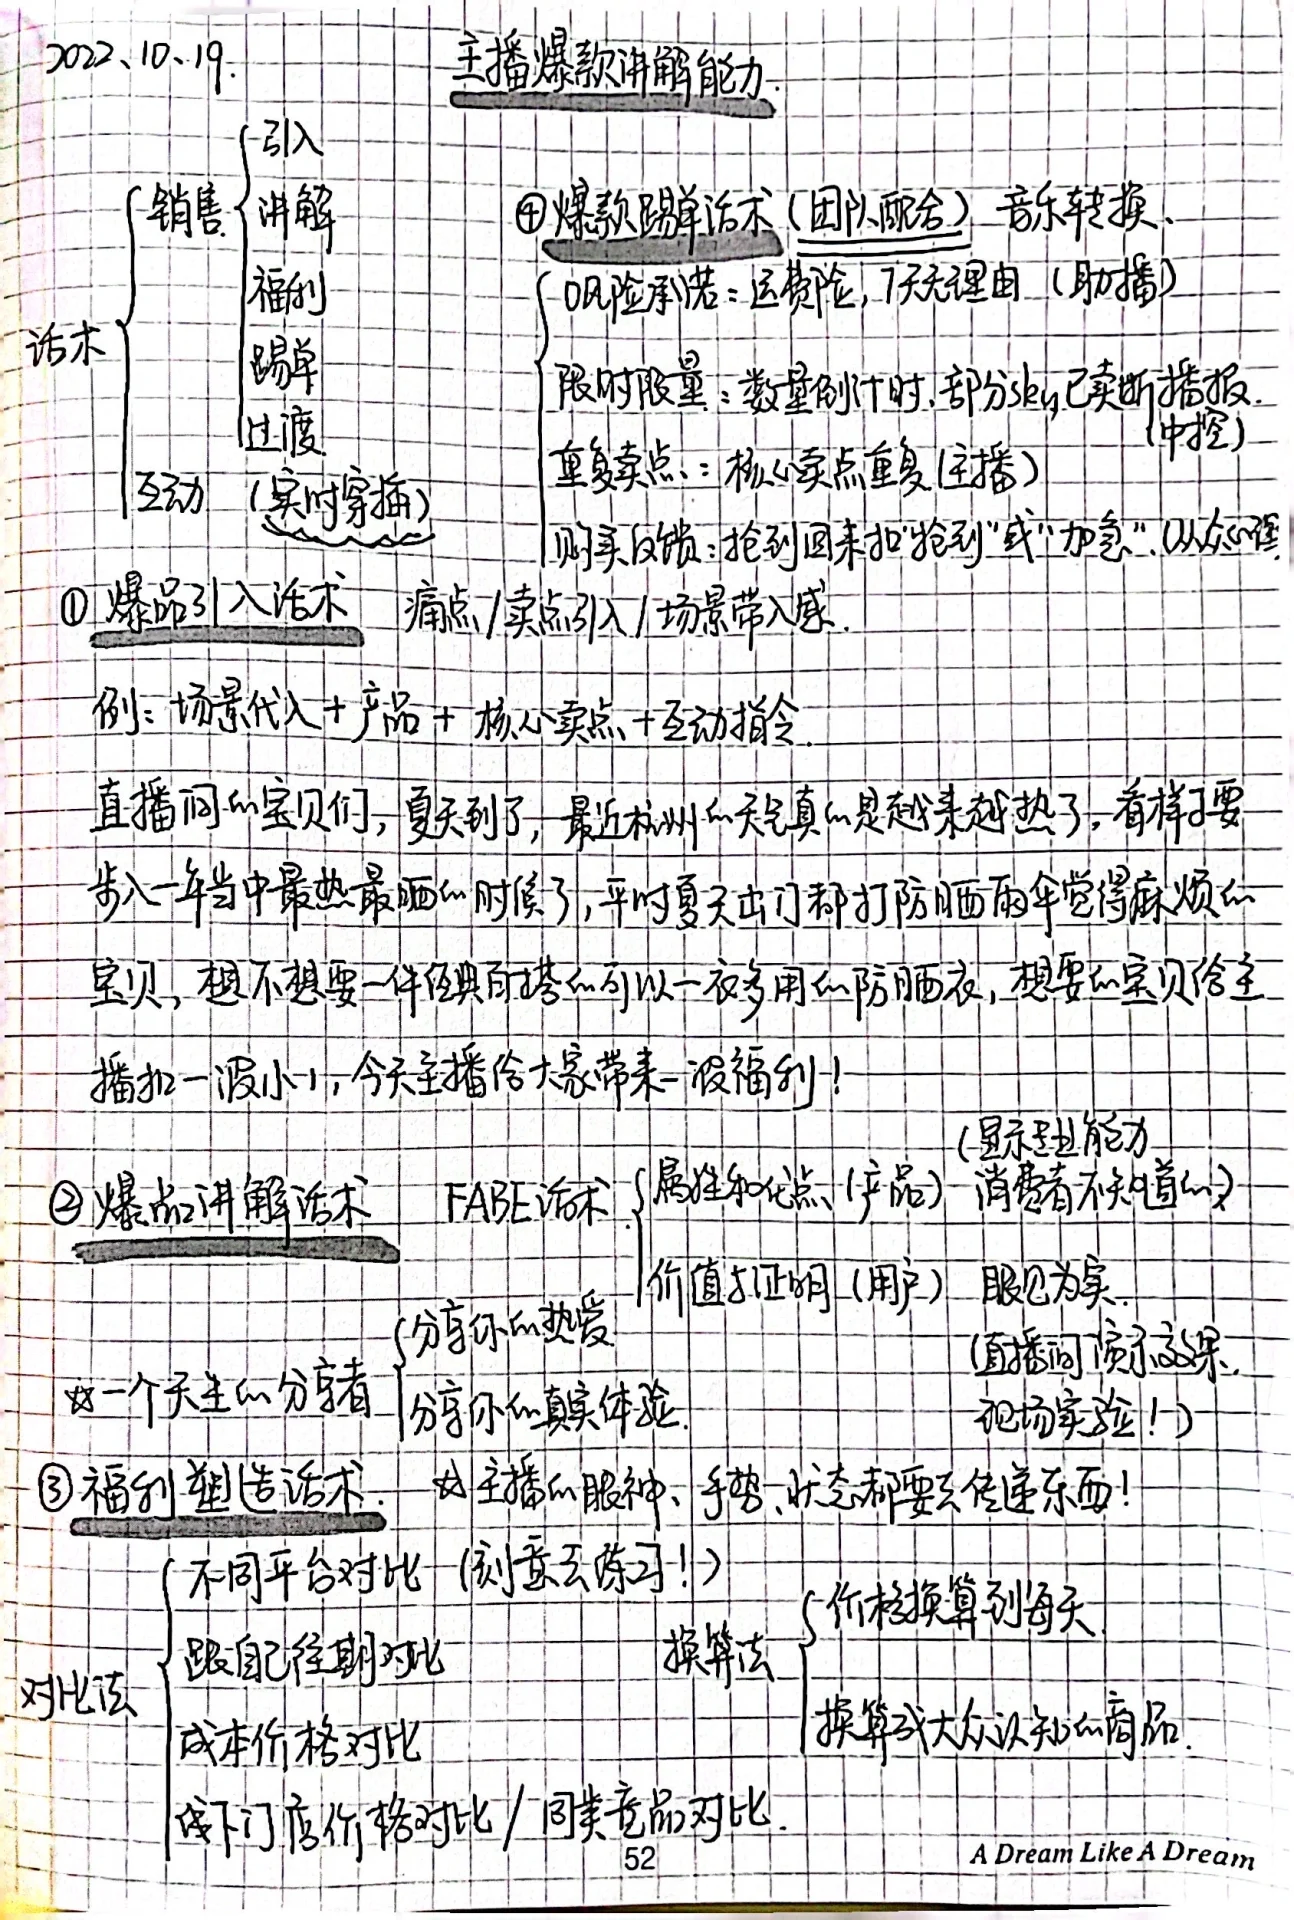 2022、10、19.
主播爆款讲解能力.
话术
销售
引入
讲解
福利
踢单
过渡
互动 (实时穿插)
④爆款踢单话术(团队配合) 音乐转换、
0风险承诺:运费险,7天无理由 (助播)
限时限量:数量倒计时、部分sku已卖断播报.
(中控)
重复卖点:核心卖点重复(主播)
购买反馈:抢到回来扣"抢到"或"加急".(从众心理
①爆品引入话术 痛点/卖点引入/场景带入感.
例:场景代入+产品+核心卖点+互动指令.
直播间的宝贝们,夏天到了,最近杭州的天气真的是越来越热了,看样子要
步入一年当中最热最晒的时候了,平时夏天出门都打防晒雨伞觉得麻烦的
宝贝,想不想要一件经典百搭的可以一衣多用的防晒衣,想要的宝贝给主
播扣一波小1,今天主播给大家带来一波福利!
②爆品讲解话术 FABE话术
属性和优点(产品)
(显示专业能力
消费者不知道的)
价值与证明(用户) 眼见为实.
(直播间演示效果.
现场实验!)
☆一个天生的分享者
分享你的热爱
分享你的真实体验.
③福利塑造话术. ☆主播的眼神、手势、状态都要去传递东西!
(刻意去练习!)
对比法
不同平台对比
跟自己往期对比
成本价格对比
线下门店价格对比/同类竞品对比.
换算法
价格换算到每天
换算成大众认知的商品.
52
A Dream Like A Dream